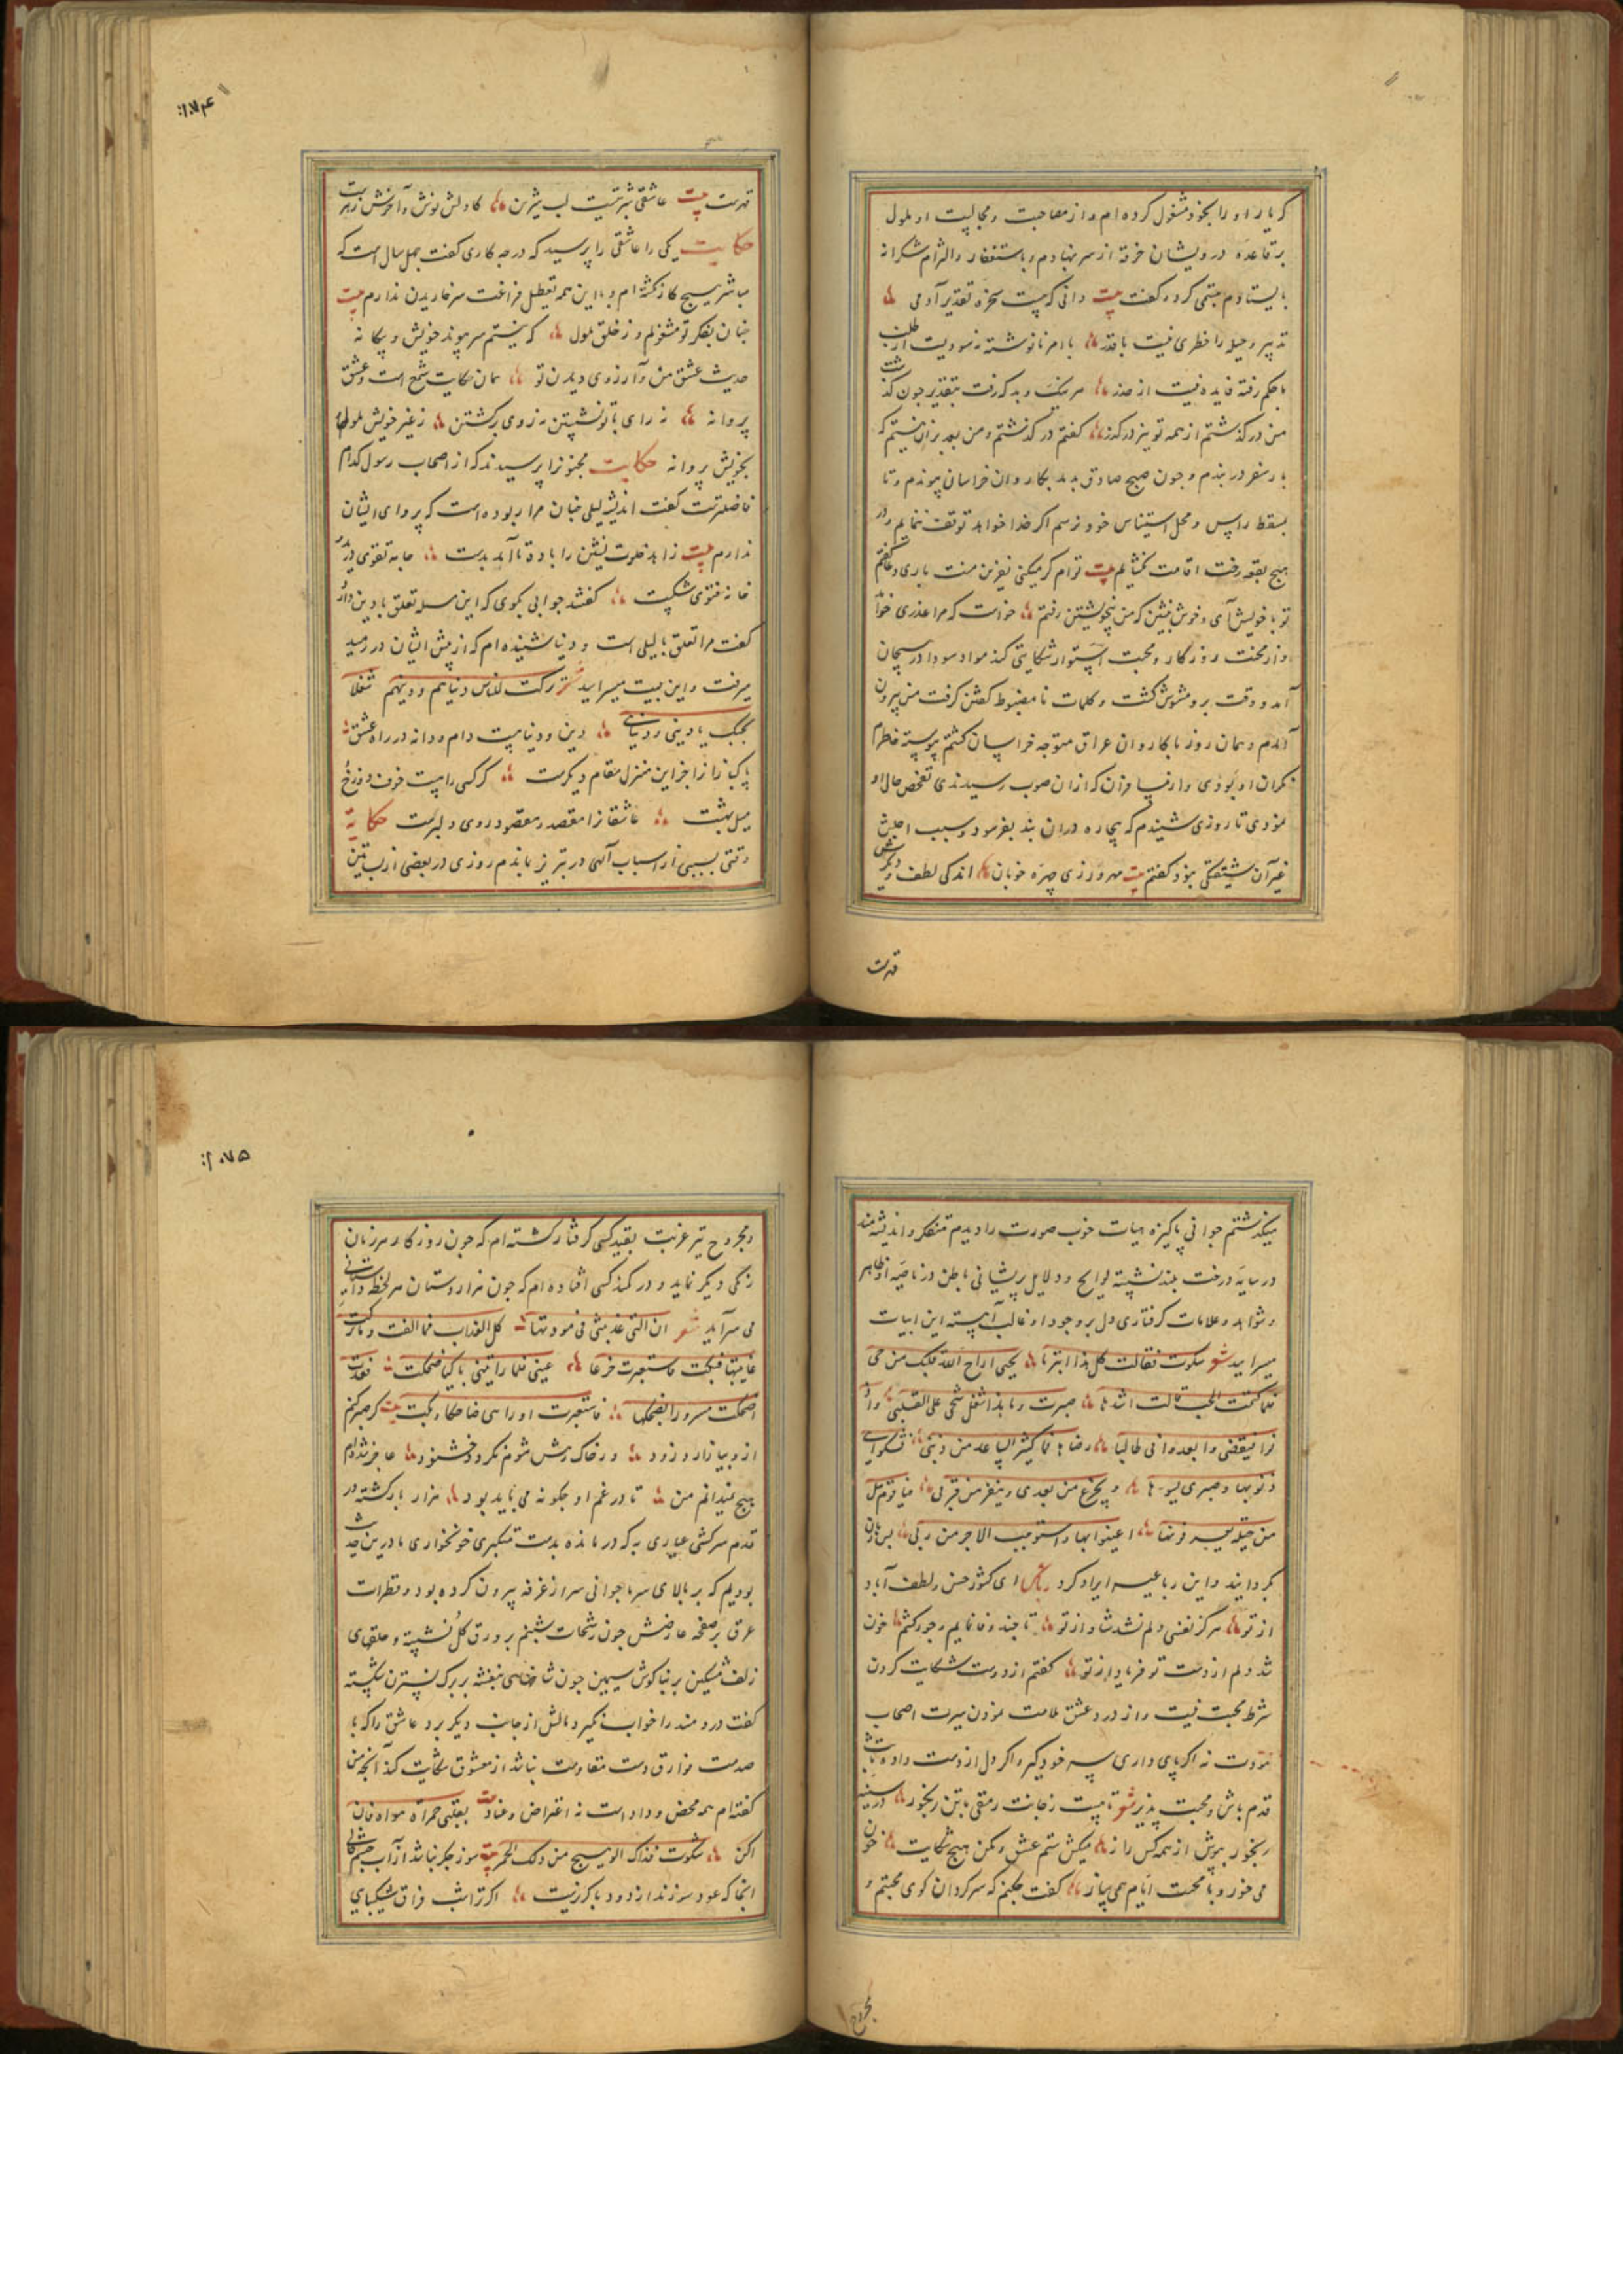 که یار او را بخود مشغول کرده‌ام و از مصاحبت و مجالست او ملول
بر قاعده درویشان خرقه از سر نهادم و باستغفار و التزام شکرانه
بایستادم تبسمی کرد و گفت بیت دانی که چیست سخره تقدیر آدمی
تدبیر و حیله را خطری نیست با قدر با امر نانوشته نه سودیت از طلب
با حکم رفته فایده نیست از حذر هر نیک و بد که رفت بتقدیر چون گذشت
من در گذشتم از همه تو نیز در گذر گفتم در گذشتم و من بعد بر آن هستم که
بار سفر در بندم و چون صبح صادق بدمد بکاروان خراسان پیوندم و تا
بمسقط راس و محل استیناس خود نرسم اگر خدا خواهد توقف ننمایم و در
هیچ بقعه رخت اقامت نگشایم بیت
تو با خویش آی و خوش بنشین که من بخویشتن رفتم خواست که مرا عذری خواهد
و از محنت روزگار و محبت استوار شکایتی کند مواد سودا در هیجان
آمد و وقت برو مشوش گشت و کلمات نامضبوط گفتن گرفت من بیرون
آمدم و همان روز با کاروان عراق متوجه خراسان گشتم پیوسته خاطرم
نگران او بودی و از مسافران که از آن صوب رسیدندی تفحص حال او
نمودی تا روزی شنیدم که بیچاره در آن بند بفرسود و سبب اجلش
غیر آن شیفتگی نبود گفتم بیت مهرورزی چهره خوبان اندکی لطف و دیگر
قهرست
قهرست بیت عاشقی شربتیست لب شیرین کاولش نوش و آخرش زهرست
حکایت یکی را عاشقی را پرسید که در چه کاری گفت چهل سال است که
مباشر هیچ کار نگشته‌ام و با این همه تعطل فراغت سر خاریدن ندارم بیت
چنان بفکر تو مشغولم و ز خلق ملول که نیستم سر پیوند خویش و بیگانه
حدیث عشق من و آرزوی دیدن تو همان حکایت شمع است و عشق
پروانه نه رای با تو نشستن نه روی برگشتن ز غیر خویش ملولم
بخویش پروانه حکایت مجنونرا پرسیدند که از اصحاب رسول کدام
فاضلترست گفت اندیشه لیلی چنان مرا ربوده است که پروای ایشان
ندارم بیت زاهد خلوت نشین را باده تا آمد بدست جامه تقوی درید
خانه فتوی شکست گفتند جوابی بگوی که این مسله تعلق با دین دارد
گفت مرا تعلق با لیلی است و دنیا شنیده‌ام که از پیش ایشان در رمید
میرفت و این بیت میسرایید شعر ترکت للناس دنیاهم و دینهم شغلا
بحبک یا دینی و دنیایی دین و دنیا چیست دام و دانه در راه عشق
پاکبازانرا جز این منزل مقام دیگرست گر کسی را هست خوف دوزخ و
میل بهشت عاشقانرا مقصد و مقصود روی دلبرست حکایة
وقتی بسببی از اسباب الهی در تبریز بماندم روزی در بعضی از بساتین
۱۰۷۴
میگذشتم جوانی پاکیزه هیات خوب صورت را دیدم متفکر و اندیشه‌مند
در سایه درخت بید نشسته لوایح و دلایل پریشانی باطن در ناصیه او ظاهر
و شواهد و علامات گرفتاری دل بر وجود او غالب آهسته این ابیات
میسرایید شعر شکوت فقالت کل هذا تبرما بحبی اراح الله قلبک من حبی
فلما کتمت الحب قالت لشد ما صبرت و ما هذا بفعل شجی القلب و ادنو
فیقصینی و ابعد
من حیلة تعرفونها اعینوا بها و استوجبوا الاجر من ربی
گردانید و این رباعیه ایراد کرد رباعی ای کشور حسن و لطف آباد
از تو هرگز نفسی دلم نشد شاد از تو تا چند وفا نمایم و جور کشم خون
شد دلم از دست تو فریاد از تو گفتم از دوست شکایت کردن
شرط محبت نیست و از درد عشق ملامت نمودن سیرت اصحاب
مودت نه اگر پای داری سر خود گیر و اگر دل از دست داده ثابت
قدم باش و محبت پذیر شعر تا هست ز جانت رمقی با تن رنجور در سینه
رنجور بپوش از همه کس راز میکش ستم عشق و مکن هیچ شکایت خون
می خور و با محنت ایام همی ساز گفت چکنم که سرگردان کوی محبتم و
مجروح
و مجروح تیر غربت بقید کسی گرفتار گشته‌ام که چون روزگار هر زمان
رنگی دیگر نماید و در کمند کسی افتاده‌ام که چون هزاردستان هر لحظه
می سراید شعر ان التی عذبتنی فی مودتها کل العذاب فما القت و ما ترکت
عاتبتها فبکت فاستعبرت جزعا عینی فلما راتنی باکیا ضحکت فعدت
اضحک مسرورا بضحکها فاستعبرت اذ راتنی ضاحکا و بکت بیت گر صبر کنم
ازو بیازارد زود ور خاک رهش شوم نگردد خشنود عاجز شده‌ام
هیچ نمیدانم من تا در غم او چگونه می باید بود هزار بار گشته در
قدم سرکشی عیاری به که در مانده بدست متکبری خونخواری ما درین حدیث
بودیم که بر بالای سر ما جوانی سر از غرفه بیرون کرده بود و قطرات
عرق بر صفحه عارضش چون رشحات شبنم بر ورق گل نشسته و حلقهای
زلف مشکین بر بناگوش سیمین چون شاخهای بنفشه بر برگ نسترن شکسته
گفت دردمند را خواب نگیرد و مالش از جانب دیگر برد عاشق را که با
صدمت فراق دوست مقاومت نباشد از معشوق شکایت کند آنچه من
گفته‌ام همه محض وداد است نه اعتراض و عناد
اکن شکوت فذاک
اینجا که عود سوزند از دود ناگزیرست اگر تراتب فراق شکیبای
۱۰۷۵